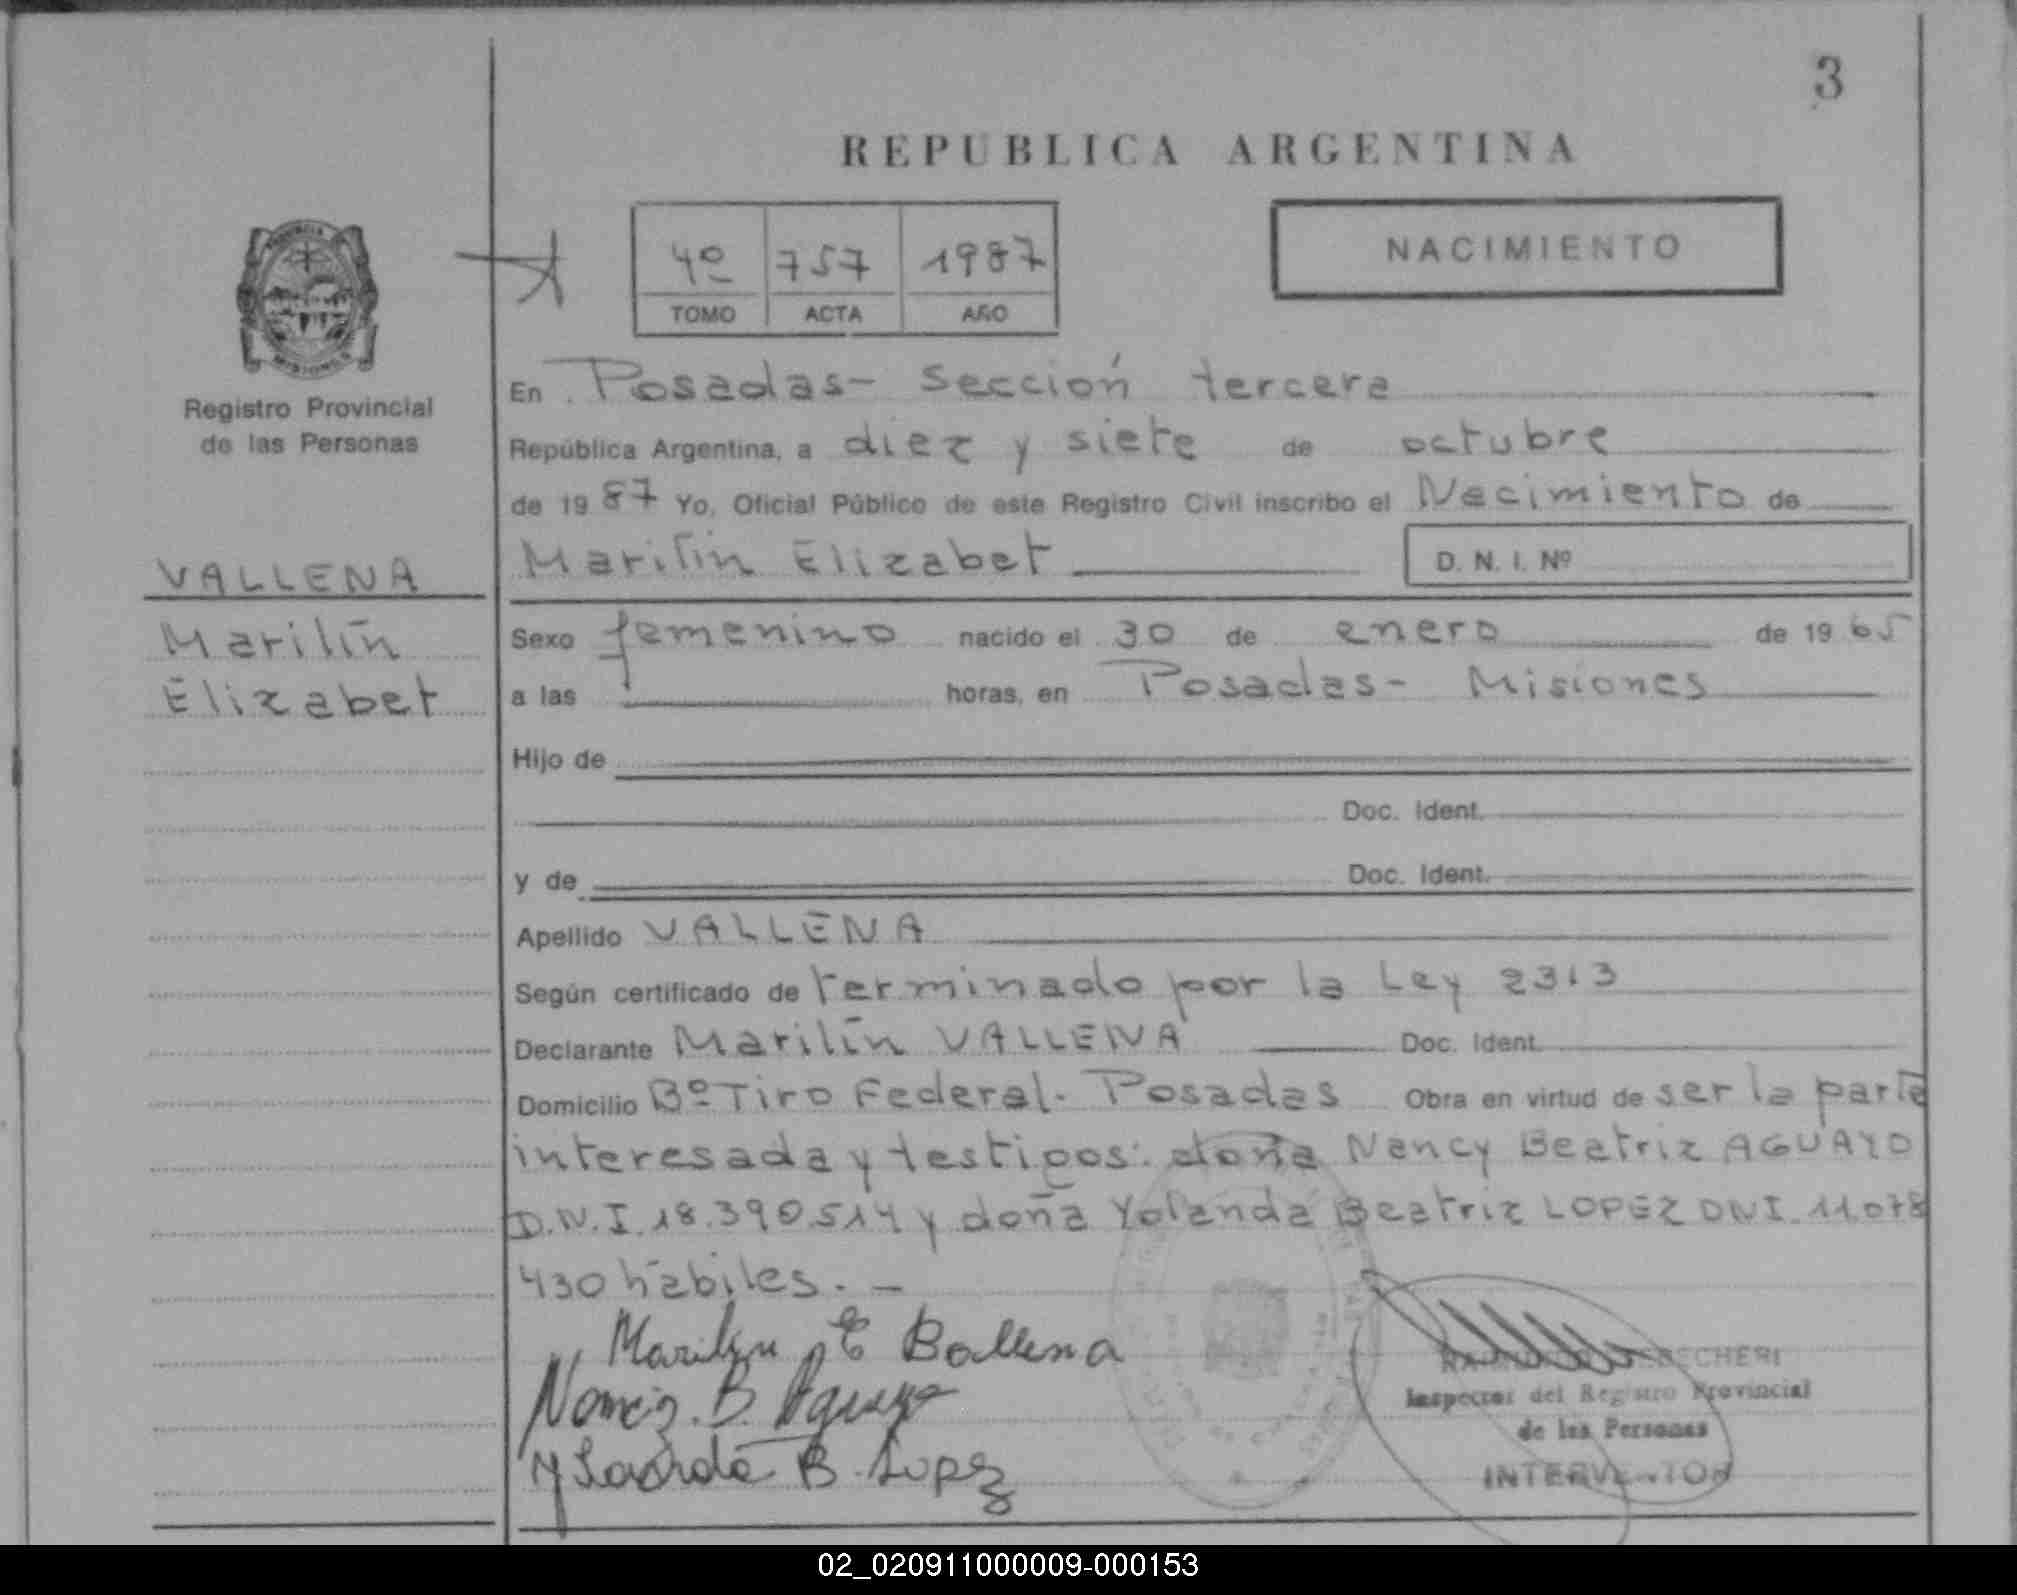 3
REPUBLICA ARGENTINA
4º 757 1987
TOMO ACTA AÑO
NACIMIENTO
Registro Provincial
de las Personas
VALLENA
Marilín
Elizabet
En Posadas - Sección tercera
República Argentina, a diez y siete de octubre
de 19 87 Yo, Oficial Público de este Registro Civil inscribo el Nacimiento de
Marilín Elizabet D. N. I. Nº
Sexo femenino nacido el 30 de enero de 19 65
a las horas, en Posadas - Misiones
Hijo de
Doc. Ident.
y de Doc. Ident.
Apellido VALLENA
Según certificado de terminado por la Ley 2313
Declarante Marilín VALLENA Doc. Ident.
Domicilio Bº Tiro Federal. Posadas Obra en virtud de ser la parte
interesada y testigos: doña Nancy Beatriz AGUAYO
D.N.I. 18.390.514 y doña Yolanda Beatriz LOPEZ DNI. 11.078
430 hábiles. -
Marilyn E Ballena
Nancy. B. Aguayo
B. Lopez
Inspector del Registro Provincial
de las Personas
INTERVENTOR
02_020911000009-000153